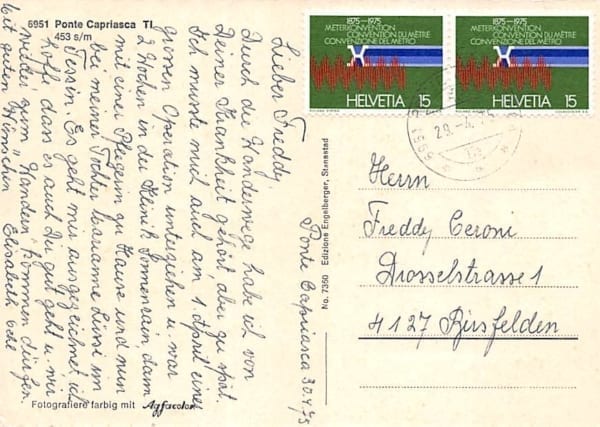 6951 Ponte Capriasca TI
453 s/m
Lieber Freddy,
Durch die Wanderweg habe ich von
Deiner Krankheit gehört, aber zu spät.
Ich musste mich auch am 1. April einer
grossen Operation unterziehen u. war
2 Wochen in der Klinik Sonnenrain, dann
mit einer Pflegerin zu Hause und nun
bei meiner Tochter Losanne Linsi im
Tessin. Es geht mir ausgezeichnet, ich
hoffe dass es auch Dir gut geht u. wir
weiter zum "Wandern" kommen dürfen
Mit guten Wünschen Elisabeth
Ponte Capriasca 30.4.75
Fotografiere farbig mit Agfacolor
No. 7350 Edizione Engelberger, Stansstad
1875-1975
METERKONVENTION
CONVENTION DU MÈTRE
CONVENZIONE DEL METRO
HELVETIA 15
1875-1975
METERKONVENTION
CONVENTION DU MÈTRE
CONVENZIONE DEL METRO
HELVETIA 15
Herrn
Freddy Ceroni
Drosselstrasse 1
4127 Birsfelden